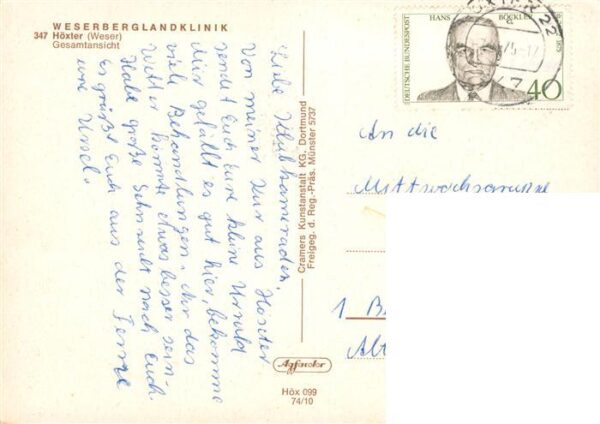 WESERBERGLANDKLINIK
347 Höxter (Weser)
Gesamtansicht
Liebe Klubkameraden,
Von meiner Kur aus Höxter
sendet Euch Eure kleine Ursula
Mir gefällt es gut hier, bekomme
viele Behandlungen. Nur das
Wetter könnte etwas besser sein.
Habe große Sehnsucht nach Euch.
Es grüßt Euch aus der Ferne
Cramers Kunstanstalt KG. Dortmund
Freigeg. d. Reg.-Präs. Münster 5737
Agfacolor
Höx 099
74/10
DEUTSCHE BUNDESPOST
HANS BÖCKLER
40
An die
Mittwochsgruppe
1 B
Alt